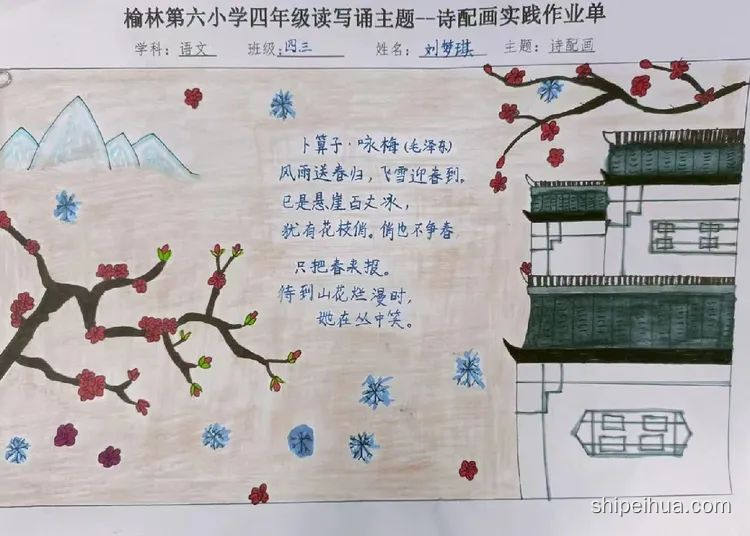 榆林第六小学四年级读写诵主题--诗配画实践作业单
学科：语文 班级：四三 姓名：刘梦琪 主题：诗配画
卜算子·咏梅（毛泽东）
风雨送春归，飞雪迎春到。
已是悬崖百丈冰，
犹有花枝俏。俏也不争春
只把春来报。
待到山花烂漫时，
她在丛中笑。
shipeihua.com